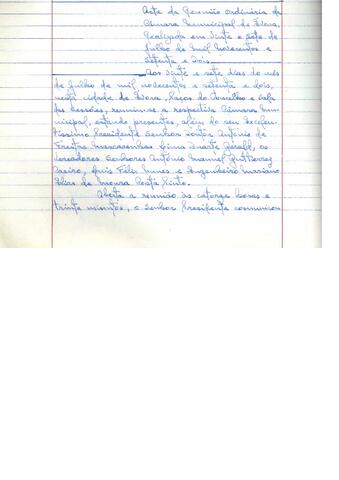 Acta da Reunião Ordinária da
Câmara Municipal de Évora,
realizada em vinte e sete de
Julho de mil novecentos e
setenta e dois.
Aos vinte e sete dias do mês
de Julho de mil novecentos e setenta e dois,
nesta cidade de Évora, Paços do Concelho e Sala
das Sessões, reuniu-se a respectiva Câmara Mu-
nicipal, estando presentes, além do seu Excelen-
tíssimo Presidente Senhor Doutor António de
Freitas Mascarenhas Duarte, os
Vereadores Senhores António Manuel
Luís Félix Nunes e Engenheiro Mariano
Elias de Moura Costa Pinto.
Aberta a reunião às catorze horas e
trinta minutos, o Senhor Presidente comunicou